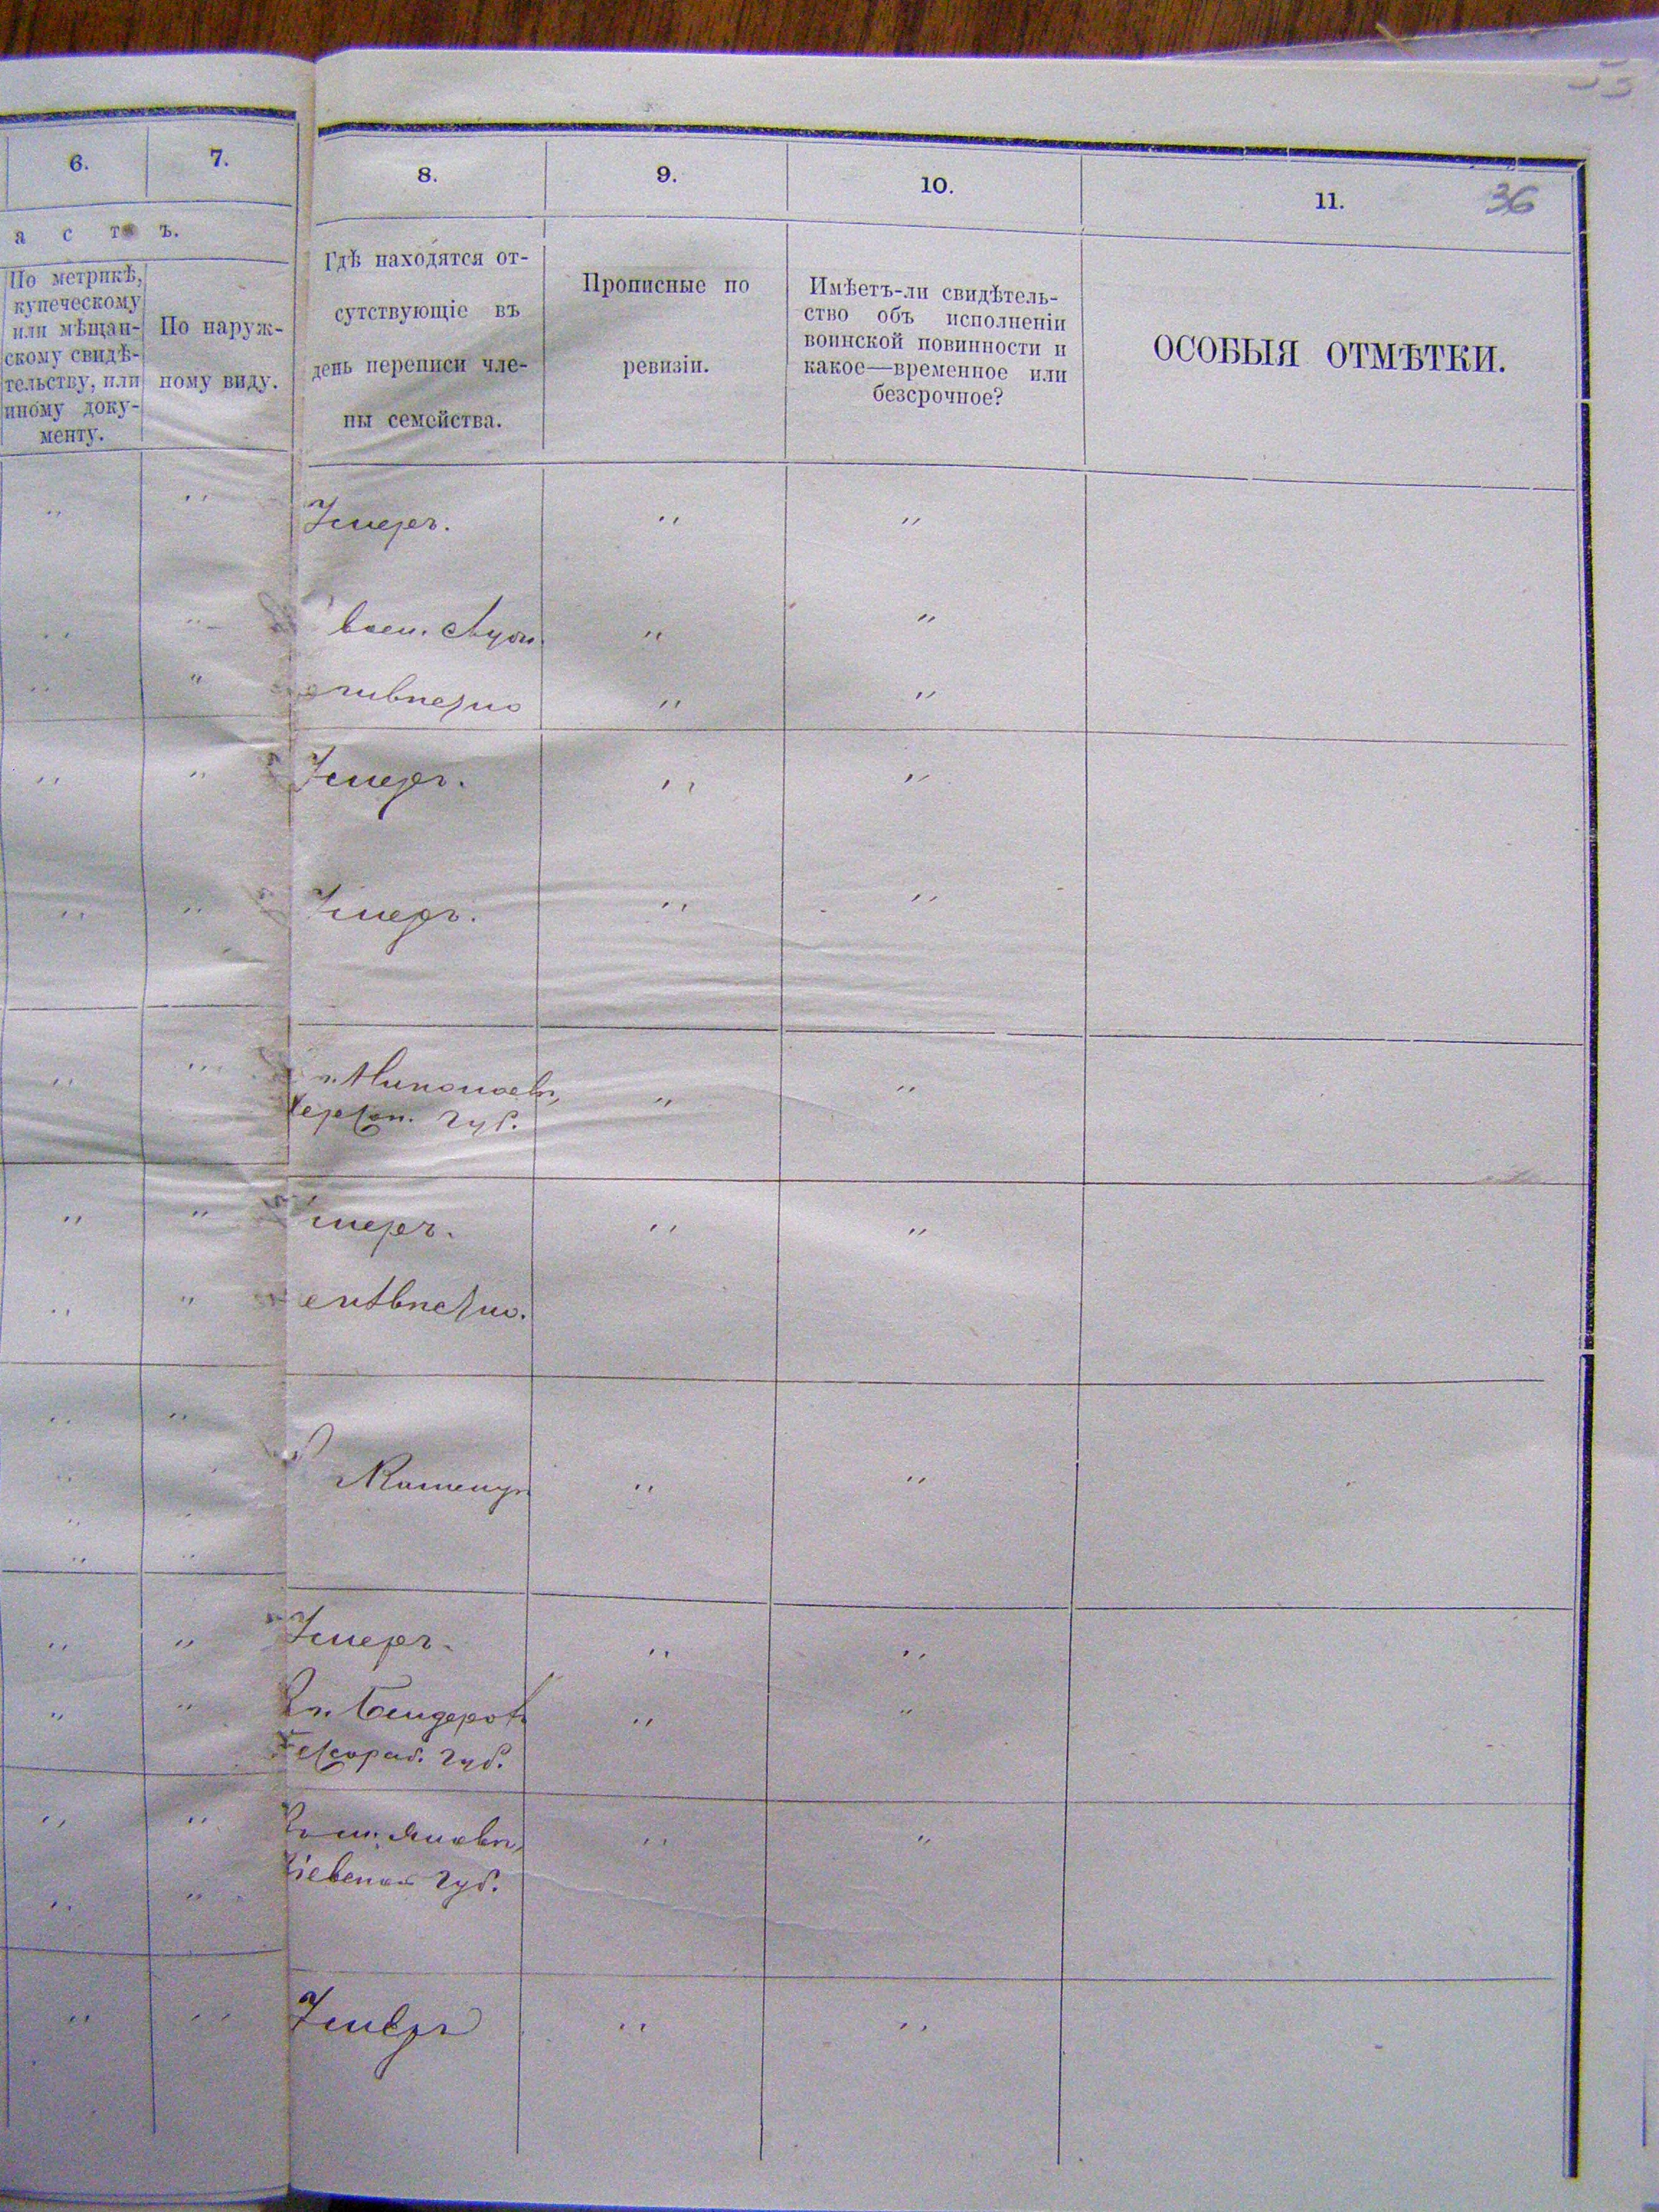 36
6.
7.
8.
9.
10.
11.
а с т ъ.
По метрикѣ,
купеческому
или мѣщан-
скому свидѣ-
тельству, или
иному доку-
менту.
По наруж-
ному виду.
Гдѣ находятся от-
сутствующіе въ
день переписи чле-
ны семейства.
Прописные по
ревизіи.
Имѣетъ-ли свидѣтель-
ство объ исполненіи
воинской повинности и
какое—временное или
безсрочное?
ОСОБЫЯ ОТМѢТКИ.
Умеръ.
Умеръ.
Умеръ.
г. Николаевъ,
Херсон. губ.
умеръ.
Умеръ.
Въ г. Бендеровъ
Бессараб. губ.
Кіевской губ.
Умеръ